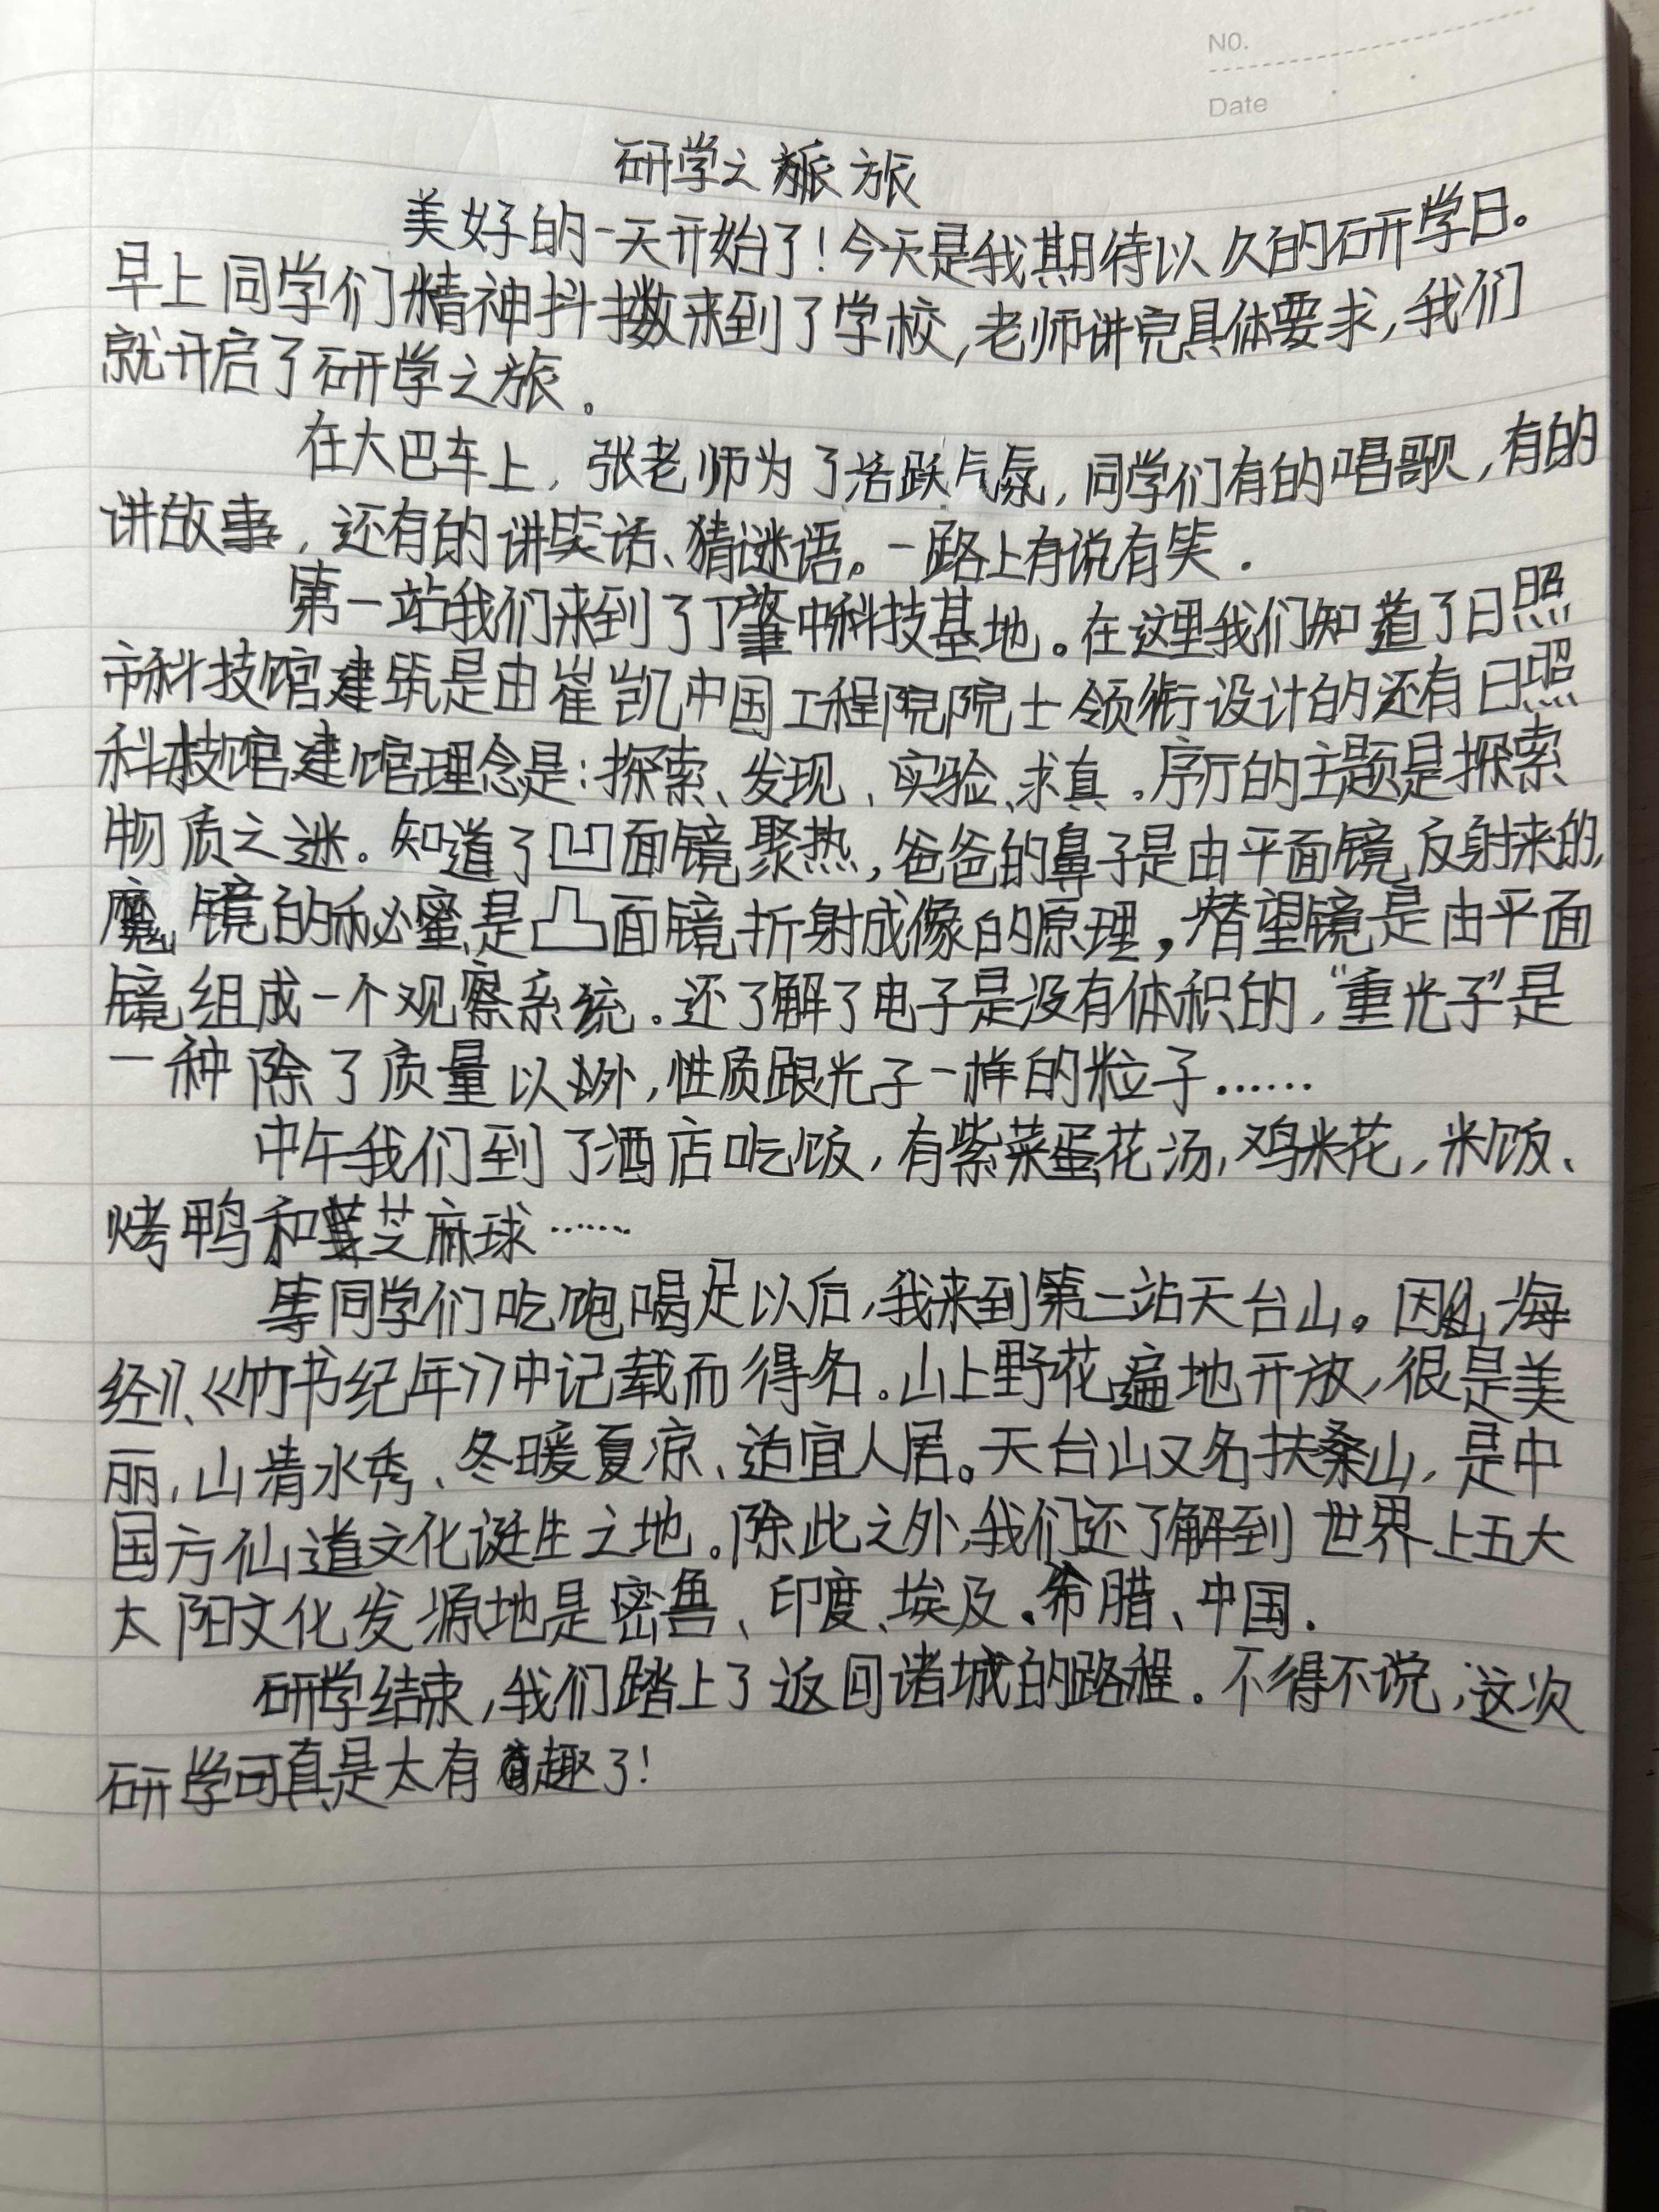 NO.
Date
研学之旅
美好的一天开始了!今天是我期待以久的研学日。
早上同学们精神抖擞来到了学校,老师讲完具体要求,我们
就开启了研学之旅。
在大巴车上,张老师为了活跃气氛,同学们有的唱歌,有的
讲故事,还有的讲笑话、猜谜语。一路上有说有笑.
第一站我们来到了丁肇中科技基地。在这里我们知道了日照
市科技馆建筑是由崔凯中国工程院院士领衔设计的还有日照
科技馆建馆理念是:探索、发现、实验、求真。序厅的主题是探索
物质之迷。知道了凹面镜聚热,爸爸的鼻子是由平面镜反射来的,
魔镜的秘蜜是凸面镜折射成像的原理,潜望镜是由平面
镜组成一个观察系统。还了解了电子是没有体积的,“重光子”是
一种除了质量以外,性质跟光子一样的粒子……
中午我们到了酒店吃饭,有紫菜蛋花汤,鸡米花,米饭、
烤鸭和芝麻球……
等同学们吃饱喝足以后,我来到第二站天台山。因山海
经》、《竹书纪年》中记载而得名。山上野花遍地开放,很是美
丽,山清水秀、冬暖夏凉、适宜人居。天台山又名扶桑山,是中
国方仙道文化诞生之地。除此之外,我们还了解到世界上五大
太阳文化发源地是密鲁、印度、埃及、希腊、中国.
研学结束,我们踏上了返回诸城的路程。不得不说,这次
研学可真是太有趣了!